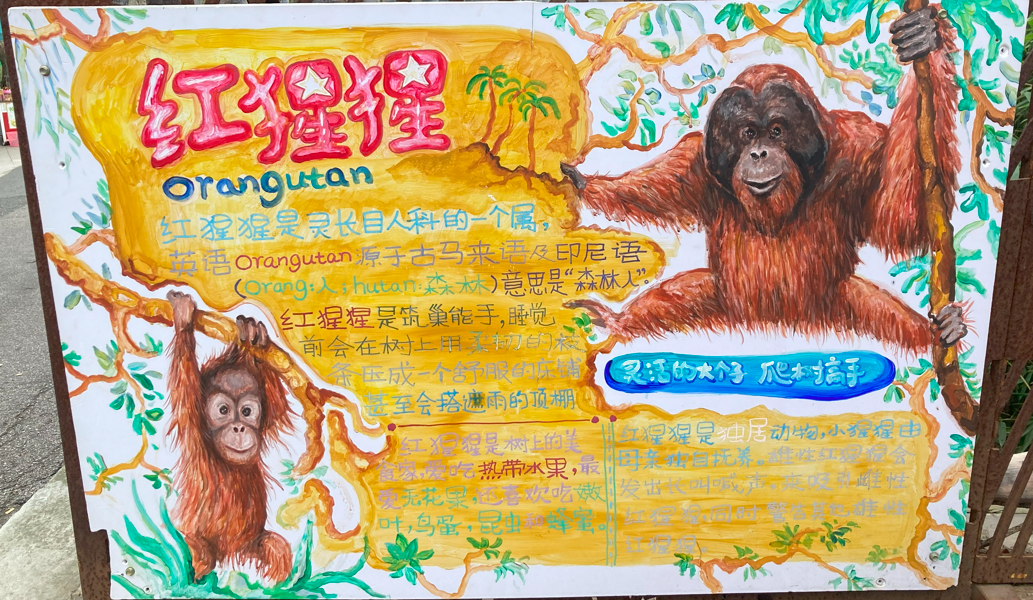 红猩猩
orangutan
红猩猩是灵长目人科的一个属，
英语orangutan源于古马来语及印尼语
（orang：人；hutan：森林）意思是“森林人”。
红猩猩是筑巢能手，睡觉
前会在树上用柔韧的枝
条压成一个舒服的床铺
甚至会搭遮雨的顶棚
灵活的大个子 爬树高手
红猩猩是树上的美
食家，爱吃热带水果，最
爱无花果，还喜欢吃嫩
叶，鸟蛋，昆虫和蜂蜜。
红猩猩是独居动物，小猩猩由
母亲独自抚养。雄性红猩猩会
发出长叫喊声。 雌性
红猩猩，同时警告其他雄性
红猩猩。